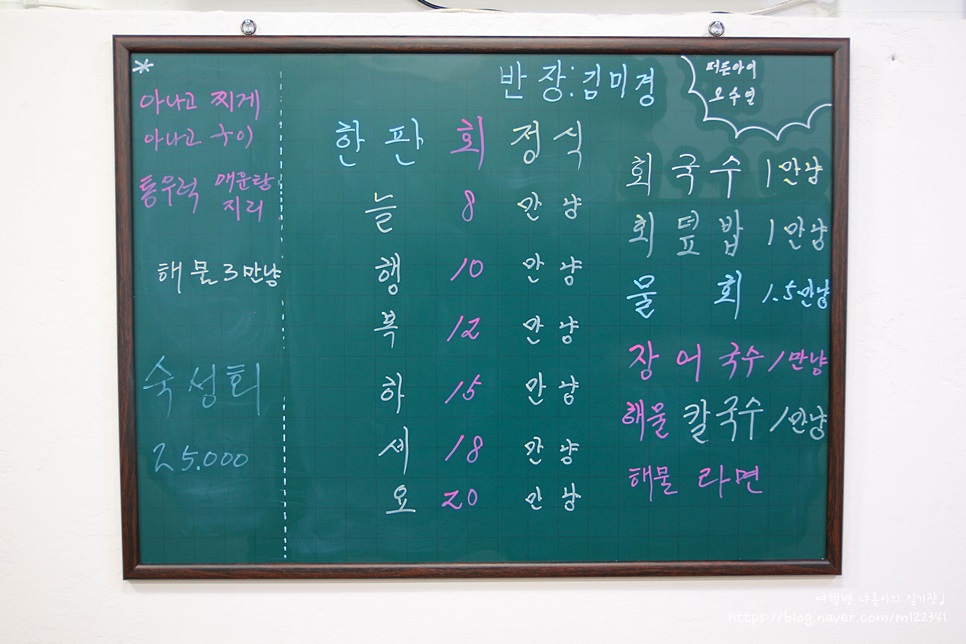 *
아나고 찌게
아나고 구이
통우럭 매운탕
지리
해물 3만냥
숙성회
25.000
반장:김미경
한판 회 정식
늘 8 만냥
행 10 만냥
복 12 만냥
하 15 만냥
세 18 만냥
요 20 만냥
떠든아이
오수연
회국수 1만냥
회덮밥 1만냥
물 회 1.5만냥
장어국수 1만냥
해물 칼국수 1만냥
해물 라면
https://blog.naver.com/m122341